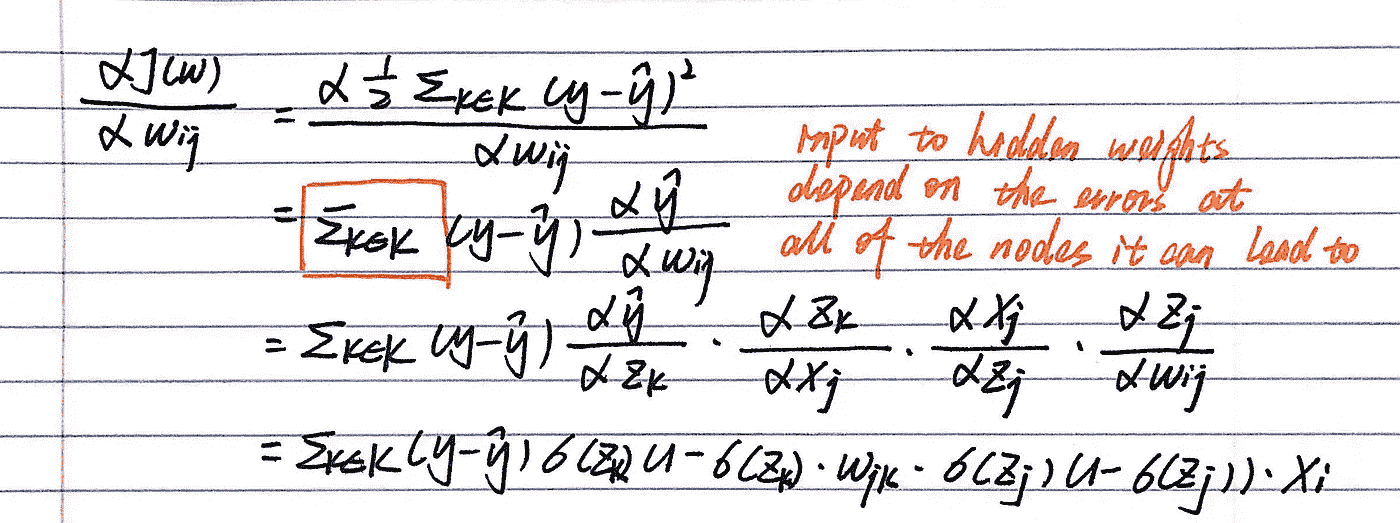 αJ(w)/αwij = α 1/2 Σk∈K (y-ŷ)²/αwij
= Σk∈K (y-ŷ) αŷ/αwij
input to hidden weights
depend on the errors at
all of the nodes it can lead to
= Σk∈K (y-ŷ) αŷ/αzk · αzk/αxj · αxj/αzj · αzj/αwij
= Σk∈K (y-ŷ) σ(zk)(1-σ(zk)·wjk·σ(zj)(1-σ(zj))·xi